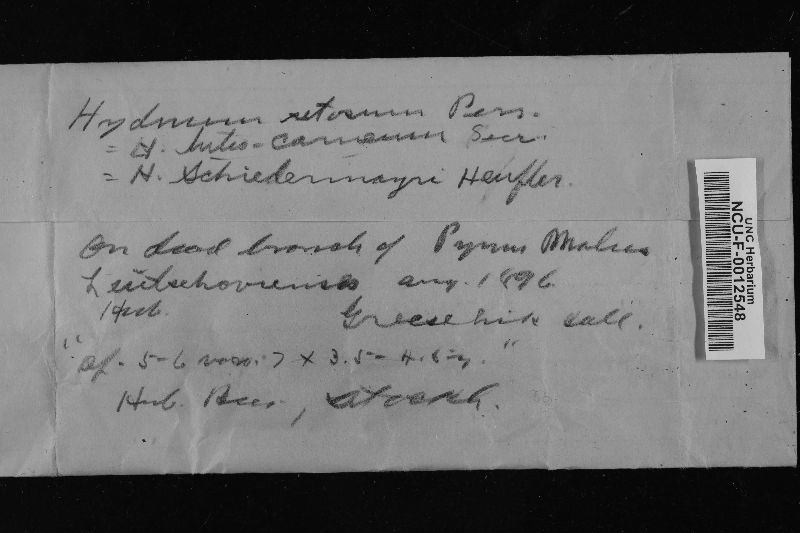 Hydnum setosum Pers.
= H. luteo-carneum Secr.
= H. Schiedermayri Heufler.
On dead branch of Pyrus Malus
Leutschoviensis aug. 1896
Herb. Greschik coll.
"sp. 5-6 raro. 7 x 3.5-4.5 μ."
Herb. Bres., Stockh.
UNC Herbarium
NCU-F-0012548